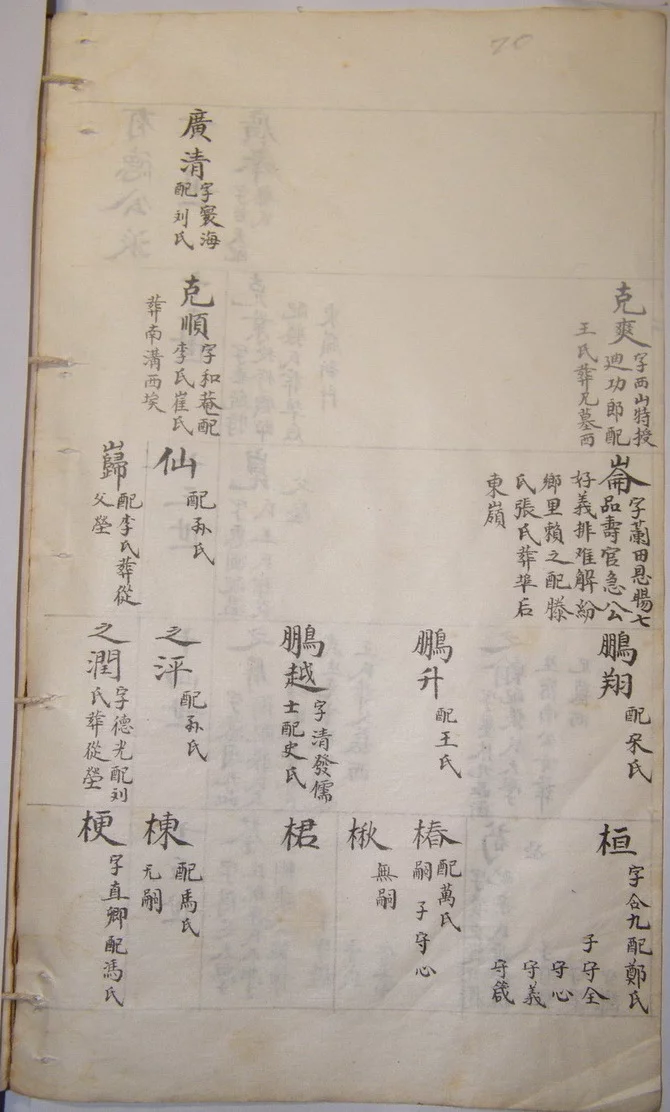 70
廣清
字寰海
配刘氏
克爽
字西山特授
迪功郎配
王氏葬兄墓西
克順
字和菴配
李氏崔氏
葬南溝西埃
崙
字蘭田恩賜七
品壽官急公
好義排难解紛
鄉里賴之配滕
氏張氏葬阜后
東嶺
仙
配孙氏
巋
配李氏葬從
父塋
鵬翔
配宋氏
鵬升
配王氏
鵬越
字清發儒
士配史氏
之泙
配孙氏
之潤
字德光配刘
氏葬從塋
桓
字合九配鄭氏
子守全
守心
守義
守箴
椿
配萬氏
嗣子守心
楸
無嗣
桾
棟
配馬氏
无嗣
梗
字直卿配馮氏